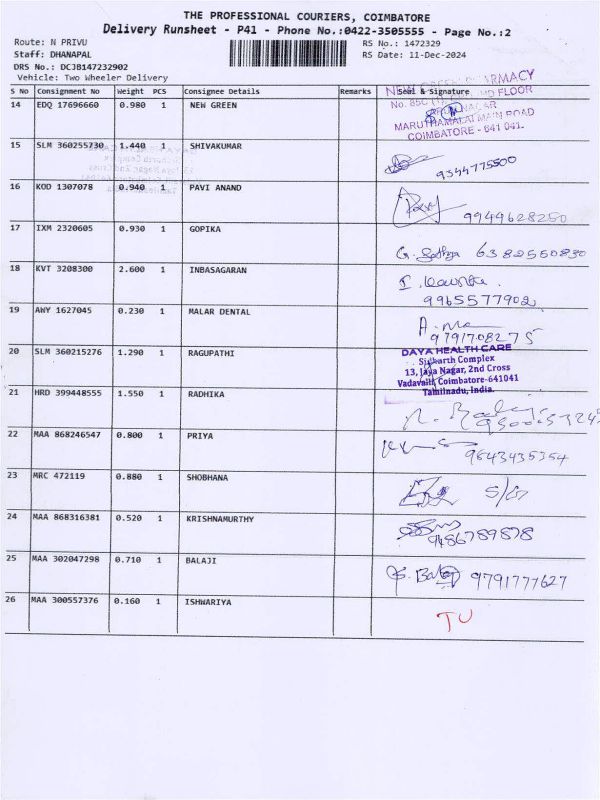 THE PROFESSIONAL COURIERS, COIMBATORE
Delivery Runsheet - P41 - Phone No.:0422-3505555 - Page No.:2
Route: N PRIVU
RS No.: 1472329
Staff: DHANAPAL
RS Date: 11-Dec-2024
DRS No.: DCJB147232902
Vehicle: Two Wheeler Delivery
S No Consignment No Weight PCS Consignee Details Remarks Seal & Signature
14 EDQ 17696660 0.980 1 NEW GREEN
PHARMACY
FLOOR
MARUTHAMALAI MAIN ROAD
COIMBATORE - 641 041.
15 SLM 360255730 1.440 1 SHIVAKUMAR 9344775500
16 KOD 1307078 0.940 1 PAVI ANAND 9949628250
17 IXM 2320605 0.930 1 GOPIKA G. Sathya 6382560830
18 KVT 3208300 2.600 1 INBASAGARAN
9965577902
19 AWY 1627045 0.230 1 MALAR DENTAL
9791708275
20 SLM 360215276 1.290 1 RAGUPATHI
DAYA HEALTH CARE
Sidharth Complex
13, Jaya Nagar, 2nd Cross
Vadavalli, Coimbatore-641041
Tamilnadu, India.
21 HRD 399448555 1.550 1 RADHIKA
22 MAA 868246547 0.800 1 PRIYA 9843435354
23 MRC 472119 0.880 1 SHOBHANA
24 MAA 868316381 0.520 1 KRISHNAMURTHY
9486789878
25 MAA 302047298 0.710 1 BALAJI 9791777627
26 MAA 300557376 0.160 1 ISHWARIYA TU